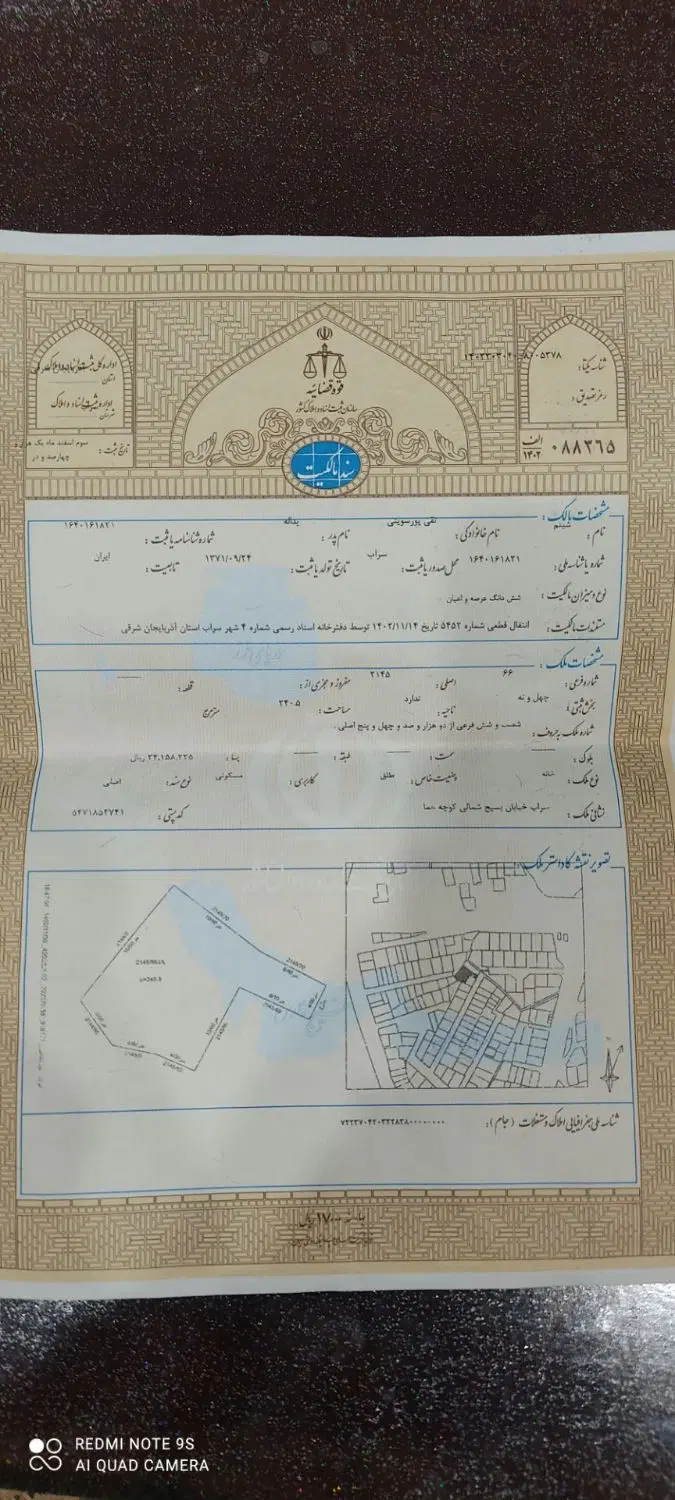 قوه قضائیه
سازمان ثبت اسناد و املاک کشور
سند مالکیت
اداره کل ثبت اسناد و املاک
استان
اداره ثبت اسناد و املاک
شهرستان
تاریخ ثبت : سوم اسفند ماه یک هزار و چهارصد و دو
شناسه یکتا :
رمز تصدیق :
الف ۱۴۰۲ ۰۸۸۳۶۵
مشخصات مالک :
نام : نام خانوادگی : تقی پورسوینی نام پدر : یداله شماره شناسنامه یا ثبت : ۱۶۴۰۱۶۱۸۲۱
شماره یا شناسه ملی : ۱۶۴۰۱۶۱۸۲۱ محل صدور یا ثبت : سراب تاریخ تولد یا ثبت : ۱۳۷۱/۰۹/۲۴ تابعیت : ایران
نوع و میزان مالکیت : شش دانگ عرصه و اعیان
مستندات مالکیت : انتقال قطعی شماره ۵۴۵۲ تاریخ ۱۴۰۲/۱۱/۱۴ توسط دفترخانه اسناد رسمی شماره ۴ شهر سراب استان آذربایجان شرقی
مشخصات ملک :
شماره فرعی : ۶۶ اصلی : ۲۱۴۵ مفروز و مجزی از : قطعه :
بخش ثبتی : چهل و نه ناحیه : ندارد مساحت : ۲۴۰.۵ مترمربع
شماره ملک به حروف : شصت و شش فرعی از دو هزار و صد و چهل و پنج اصلی .
بلوک : سمت : طبقه : بها : ۲۴,۱۵۸,۲۲۵ ریال
نوع ملک : خانه وضعیت خاص : مطلق کاربری : مسکونی نوع سند : اصلی
نشانی ملک : سراب خیابان بسیج شمالی کوچه هما کد پستی : ۵۴۷۱۸۵۲۷۴۱
تصویر نقشه کاداستر ملک
شناسه ملی جغرافیایی املاک و مستغلات (جام) :
REDMI NOTE 9S
AI QUAD CAMERA